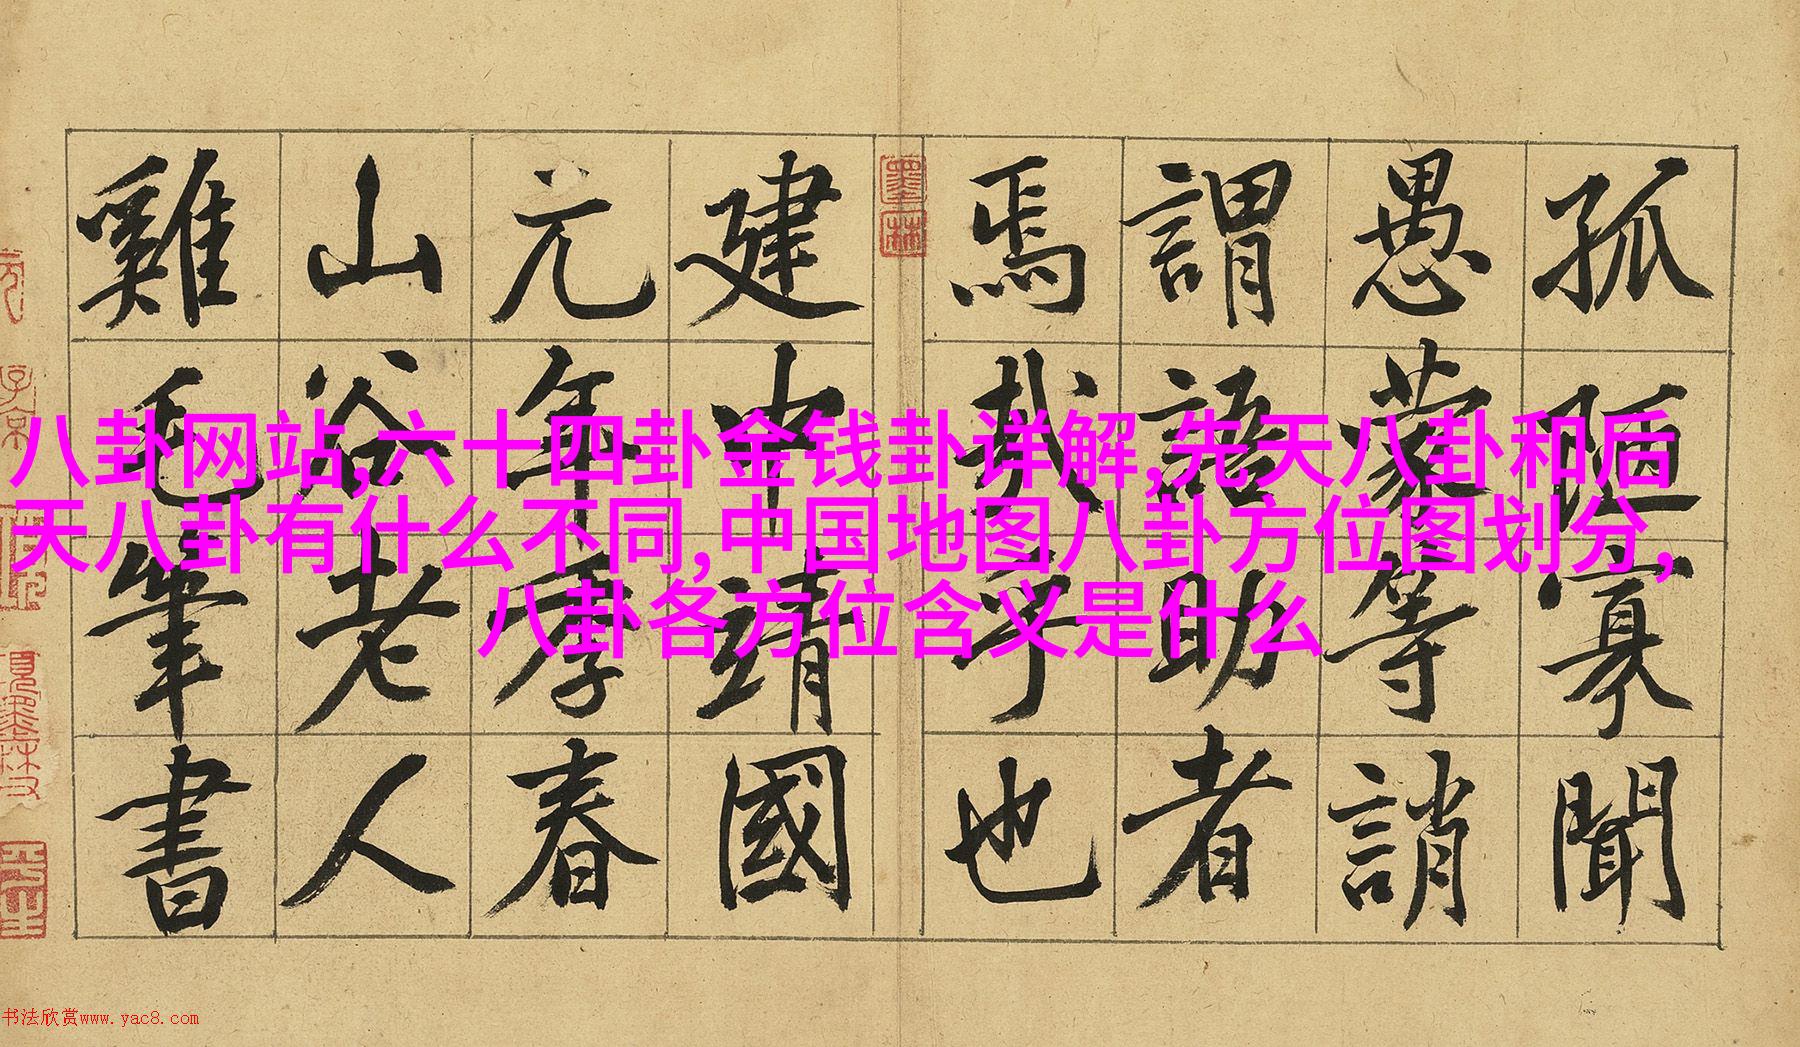 八卦网站,六十四卦金钱卦详解,先天八卦和后
天八卦有什么不同,中国地图八卦方位图划分,
八卦各方位含义是什么
孤陋寡聞
愚蒙等誚
謂語助者
焉哉乎也
墨林
建中靖國
元年季春
山谷老人
雞毛筆書
子京
书法欣赏www.yac8.com